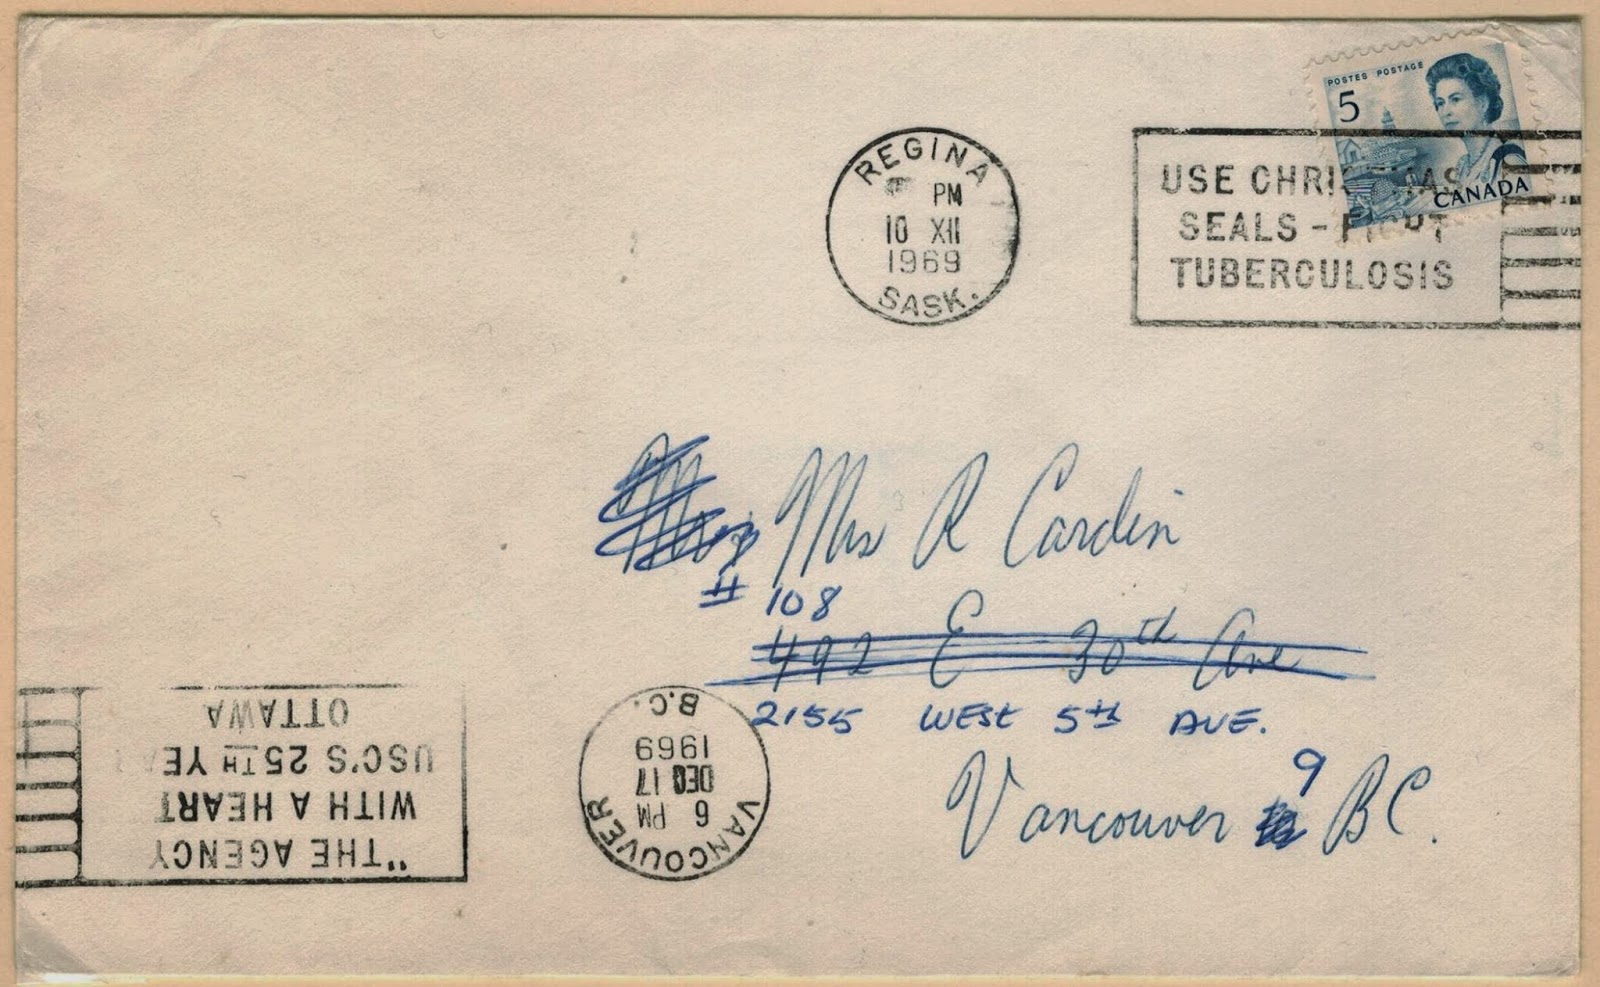 POSTES POSTAGE
5
CANADA
REGINA
PM
10 XII
1969
SASK.
USE CHRISTMAS
SEALS - FIGHT
TUBERCULOSIS
Mrs R Cardin
# 108
492 E 30th Ave
2155 WEST 5th AVE.
Vancouver 9 BC.
VANCOUVER
6 PM
DEC 17
1969
B.C.
"THE AGENCY
WITH A HEART
USC'S 25TH YEA
OTTAWA